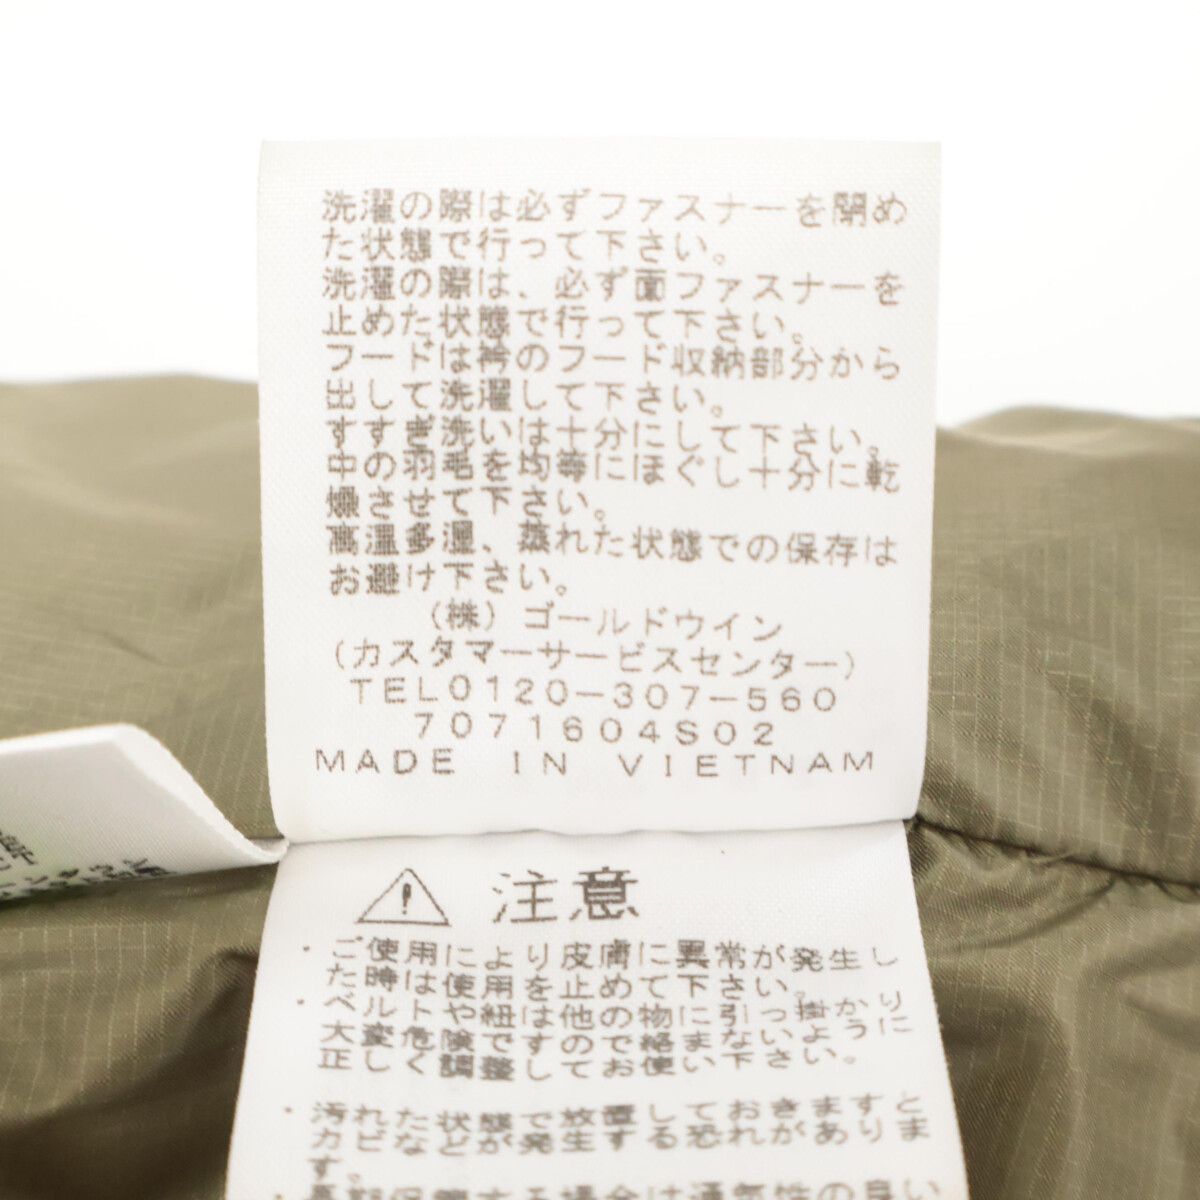 洗濯の際は必ずファスナーを閉め
た状態で行って下さい。
洗濯の際は、必ず面ファスナーを
止めた状態で行って下さい。
フードは衿のフード収納部分から
出して洗濯して下さい。
すすぎ洗いは十分にして下さい。
中の羽毛を均等にほぐし十分に乾
燥させて下さい。
高温多湿、蒸れた状態での保存は
お避け下さい。
(株)ゴールドウイン
(カスタマーサービスセンター)
TEL0120-307-560
7071604S02
MADE IN VIETNAM
注意
・ご使用により皮膚に異常が発生し
た時は使用を止めて下さい。
・ベルトや紐は他の物に引っ掛かり
大変危険ですので絡まないように
正しく調整してお使い下さい。
・汚れた状態で放置しておきますと
カビなどが発生する恐れがありま
す。
・長期保管する場合は通気性の良い